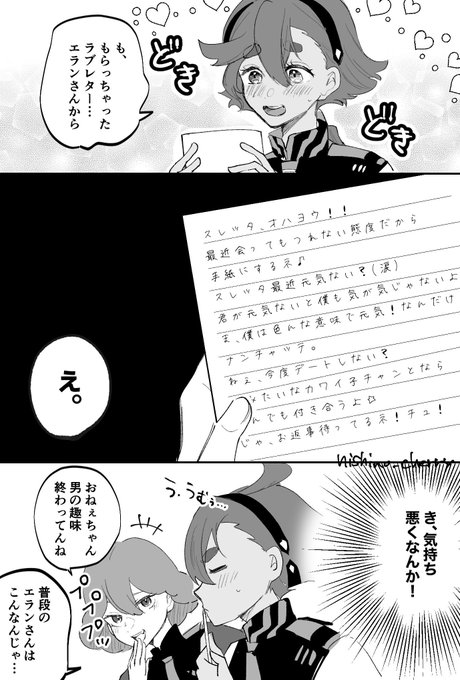 も、
もらっちゃった
ラブレター…
エランさんから
どき
どき
スレッタ、オハヨウ!!
最近会ってもつれない態度だから
手紙にするネ♪
スレッタ最近元気ない?(涙)
君が元気ないと僕も気が気じゃないよ
ま、僕は色んな意味で元気!なんだけ
ナンチャッテ。
ねぇ、今度デートしない?
みたいなカワイ子チャンとなら
んでも付き合うよ☆
じゃ、お返事待ってるネ!チュ!
え。
き、気持ち
悪くなんか!
う、うむぅ…
おねぇちゃん
男の趣味
終わってんね
プププッ
普段の
エランさんは
こんなんじゃ…